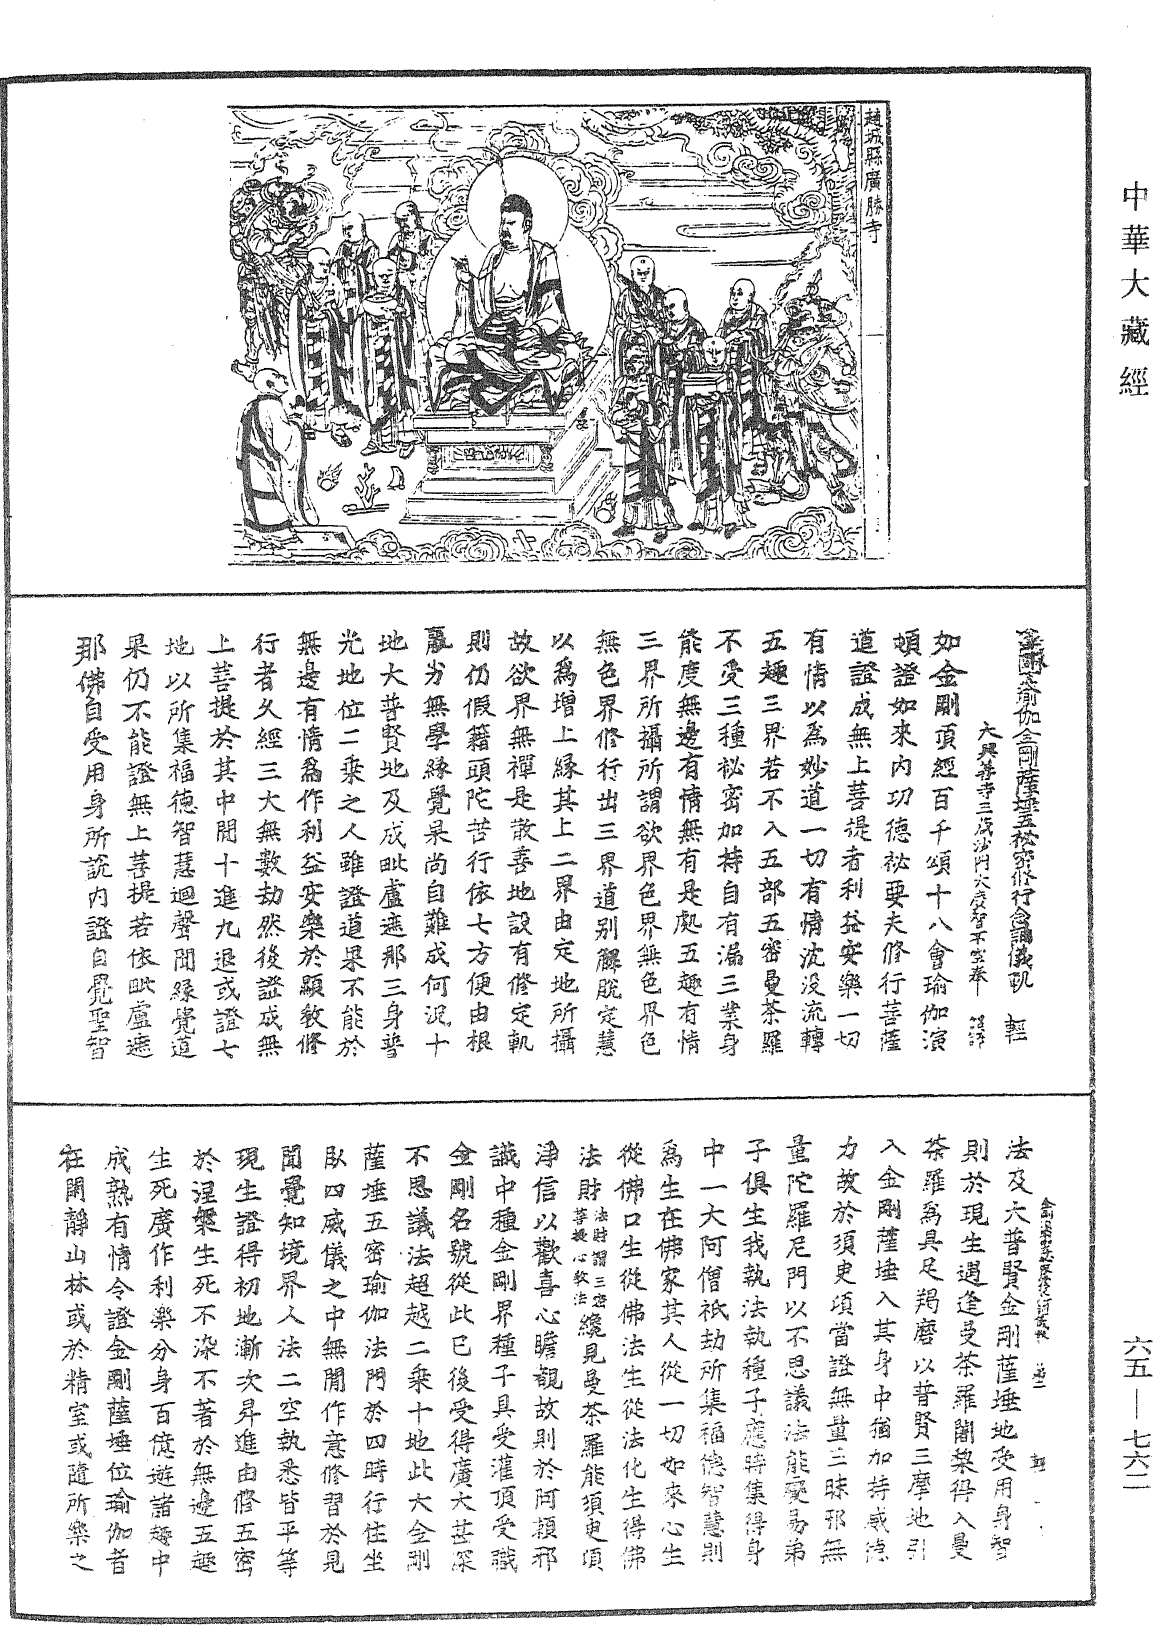 中華大藏經
趙城縣廣勝寺
金剛頂瑜伽金剛薩埵五祕密修行念誦儀軌 輕
大興善寺三藏沙門大廣智不空奉 詔譯
如金剛頂經百千頌十八會瑜伽演
頓證如來內功德祕要夫修行菩薩
道證成無上菩提者利益安樂一切
有情以為妙道一切有情沈没流轉
五趣三界若不入五部五密曼荼羅
不受三種祕密加持自有漏三業身
能度無邊有情無有是處五趣有情
三界所攝所謂欲界色界無色界色
無色界修行出三界道別解脫定慧
以為增上緣其上二界由定地所攝
故欲界無禪是散善地設有修定軌
則仍假籍頭陀苦行依七方便由根
羸劣無學緣覺果尚自難成何況十
地大普賢地及成毗盧遮那三身普
光地位二乘之人雖證道果不能於
無邊有情為作利益安樂於顯教修
行者久經三大無數劫然後證成無
上菩提於其中間十進九退或證七
地以所集福德智慧迴聲聞緣覺道
果仍不能證無上菩提若依毗盧遮
那佛自受用身所說內證自覺聖智
法及大普賢金剛薩埵地受用身智
則於現生遇逢曼荼羅闍棃得入曼
荼羅為具足羯磨以普賢三摩地引
入金剛薩埵入其身中猶加持威德
力故於須臾頃當證無量三昧邪無
量陀羅尼門以不思議法能變易弟
子俱生我執法執種子應時集得身
中一大阿僧祇劫所集福德智慧則
為生在佛家其人從一切如來心生
從佛口生從佛法生從法化生得佛
法財法財謂三密菩提心教法纔見曼荼羅能須臾頃
淨信以歡喜心瞻覩故則於阿賴邪
識中種金剛界種子具受灌頂受職
金剛名號從此已後受得廣大甚深
不思議法超越二乘十地此大金剛
薩埵五密瑜伽法門於四時行住坐
臥四威儀之中無閒作意修習於見
聞覺知境界人法二空執悉皆平等
現生證得初地漸次昇進由修五密
於涅槃生死不染不著於無邊五趣
生死廣作利樂分身百億遊諸趣中
成熟有情令證金剛薩埵位瑜伽者
在閑靜山林或於精室或隨所樂之
六五—七六二